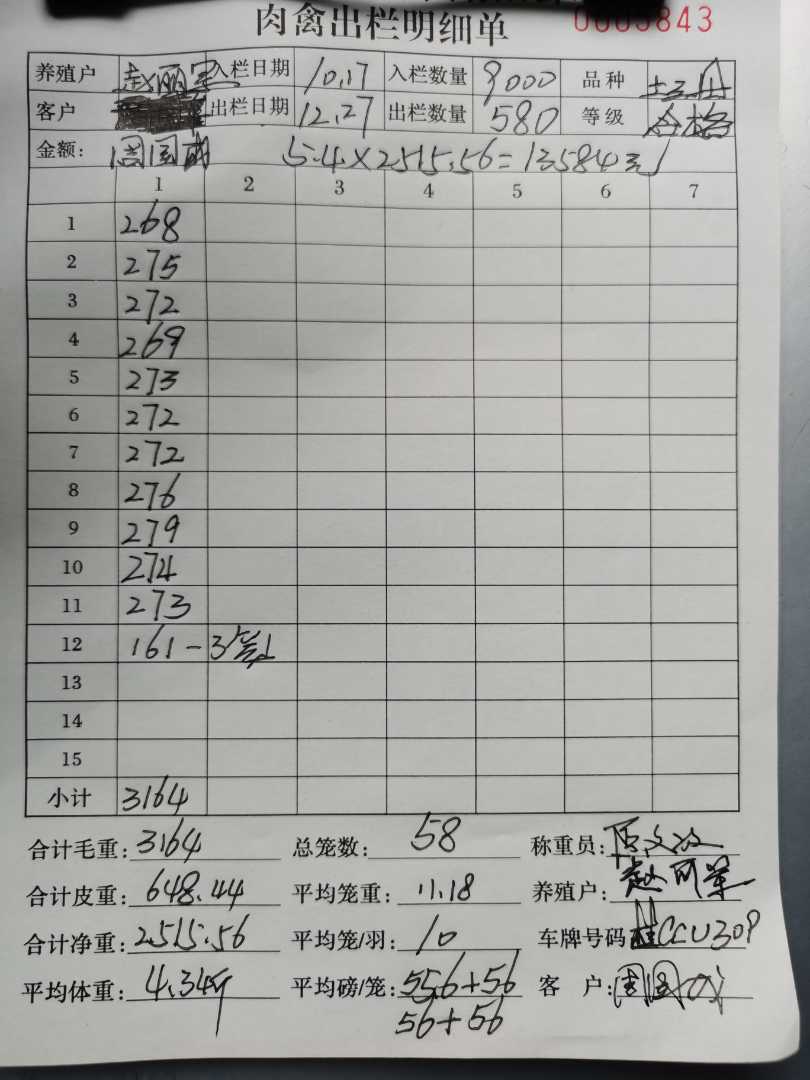 肉禽出栏明细单
养殖户 赵丽军 入栏日期 10.17 入栏数量 9000 品种
客户 出栏日期 12.27 出栏数量 580 等级 合格
金额: 周国成 5.4×2515.56=13584元
1 2 3 4 5 6 7
1 268
2 275
3 272
4 269
5 273
6 272
7 272
8 276
9 279
10 274
11 273
12 161-3笼
13
14
15
小计 3164
合计毛重: 3164 总笼数: 58 称重员:
合计皮重: 648.44 平均笼重: 11.18 养殖户: 赵丽军
合计净重: 2515.56 平均笼/羽: 10 车牌号码 桂CCU309
平均体重: 4.34 平均磅/笼: 556+56 客 户:
56+56